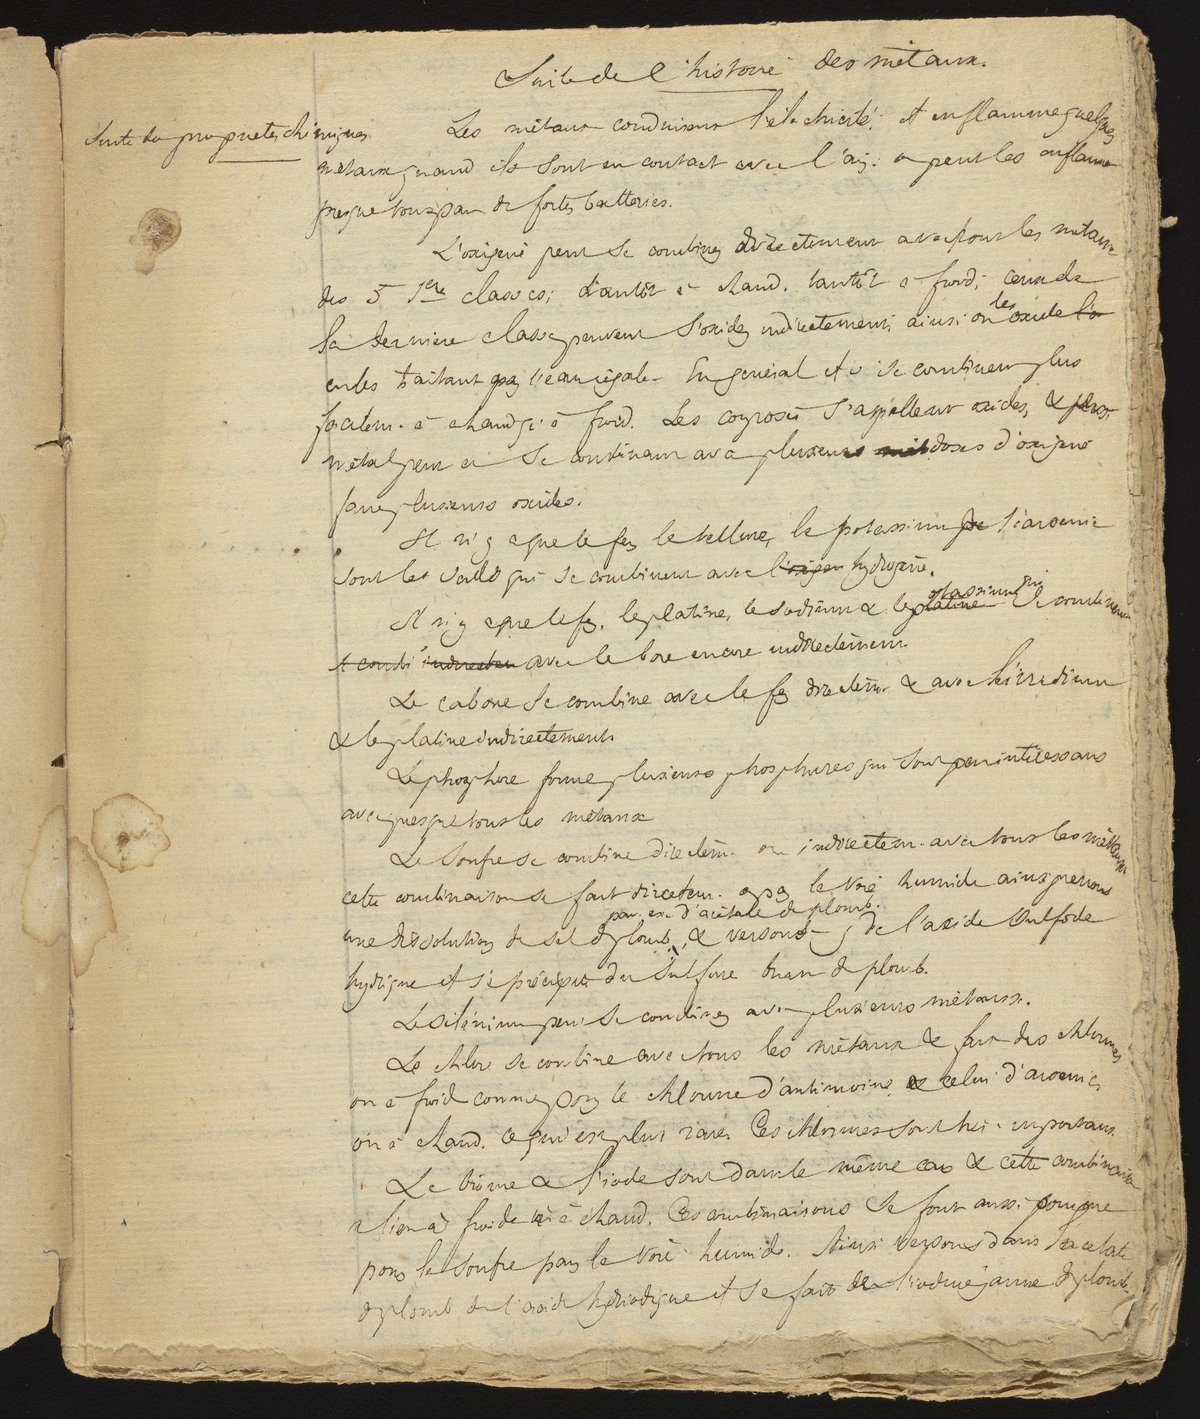 Suite de l'histoire des métaux.
Suite des propriétés chimiques
Les métaux conduisent l'électricité; et enflamme quelques
métaux quand ils sont en contact avec l'air. on peut les enflammer
presque tous par de fortes batteries.
L'oxigène peut se combiner directement avec tous les métaux
des 5 1ères classes; tantôt à chaud, tantôt à froid; ceux de
la dernière classe peuvent s'oxider indirectement; ainsi on les oxide l'o
en les traitant par l'eau régale. En général ils se combinent plus
facilem. à chaud qu'à froid. Les composés s'appellent oxides, &
métal peut en se combinant avec plusieurs doses d'oxigène
faire plusieurs oxides.
Il n'y a que le fer, le tellure, le potassium l'arsenic
sont les seuls qui se combinent avec l'oxigen hydrogène.
Il n'y a que le fer, le platine, le sodium & le platine potassium qui se combinent
et combi indirectem avec le bore encore indirectement.
Le carbone se combine avec le fer directem. & avec l'iridium
& le platine indirectement.
Le phosphore forme plusieurs phosphures qui sont peu intéressans
avec presque tous les métaux
Le soufre se combine directem. ou indirectem. avec tous les métaux
cette combinaison se fait directem. ou par la voie humide ainsi prenons
une dissolution de sel de plomb, par ex. d'acétate de plomb. & versons-y de l'acide sulfide
hydrique et il se précipite du sulfure brun de plomb.
Le sélénium peut se combiner avec plusieurs métaux.
Le chlor se combine avec tous les métaux & fait des chlorures
ou à froid comme pour le chlorure d'antimoine & celui d'arsenic,
ou à chaud, ce qui est plus rare. Ces chlorures sont très-importans.
Le brôme & l'iode sont dans le même cas & cette combinaison
a lieu à froid et à chaud. Ces combinaisons se font aussi comme
pour le soufre par la voie humide. Ainsi versons dans l'acétate
de plomb, de l'acide hydriodique et il se fait de l'iodure jaune de plomb.